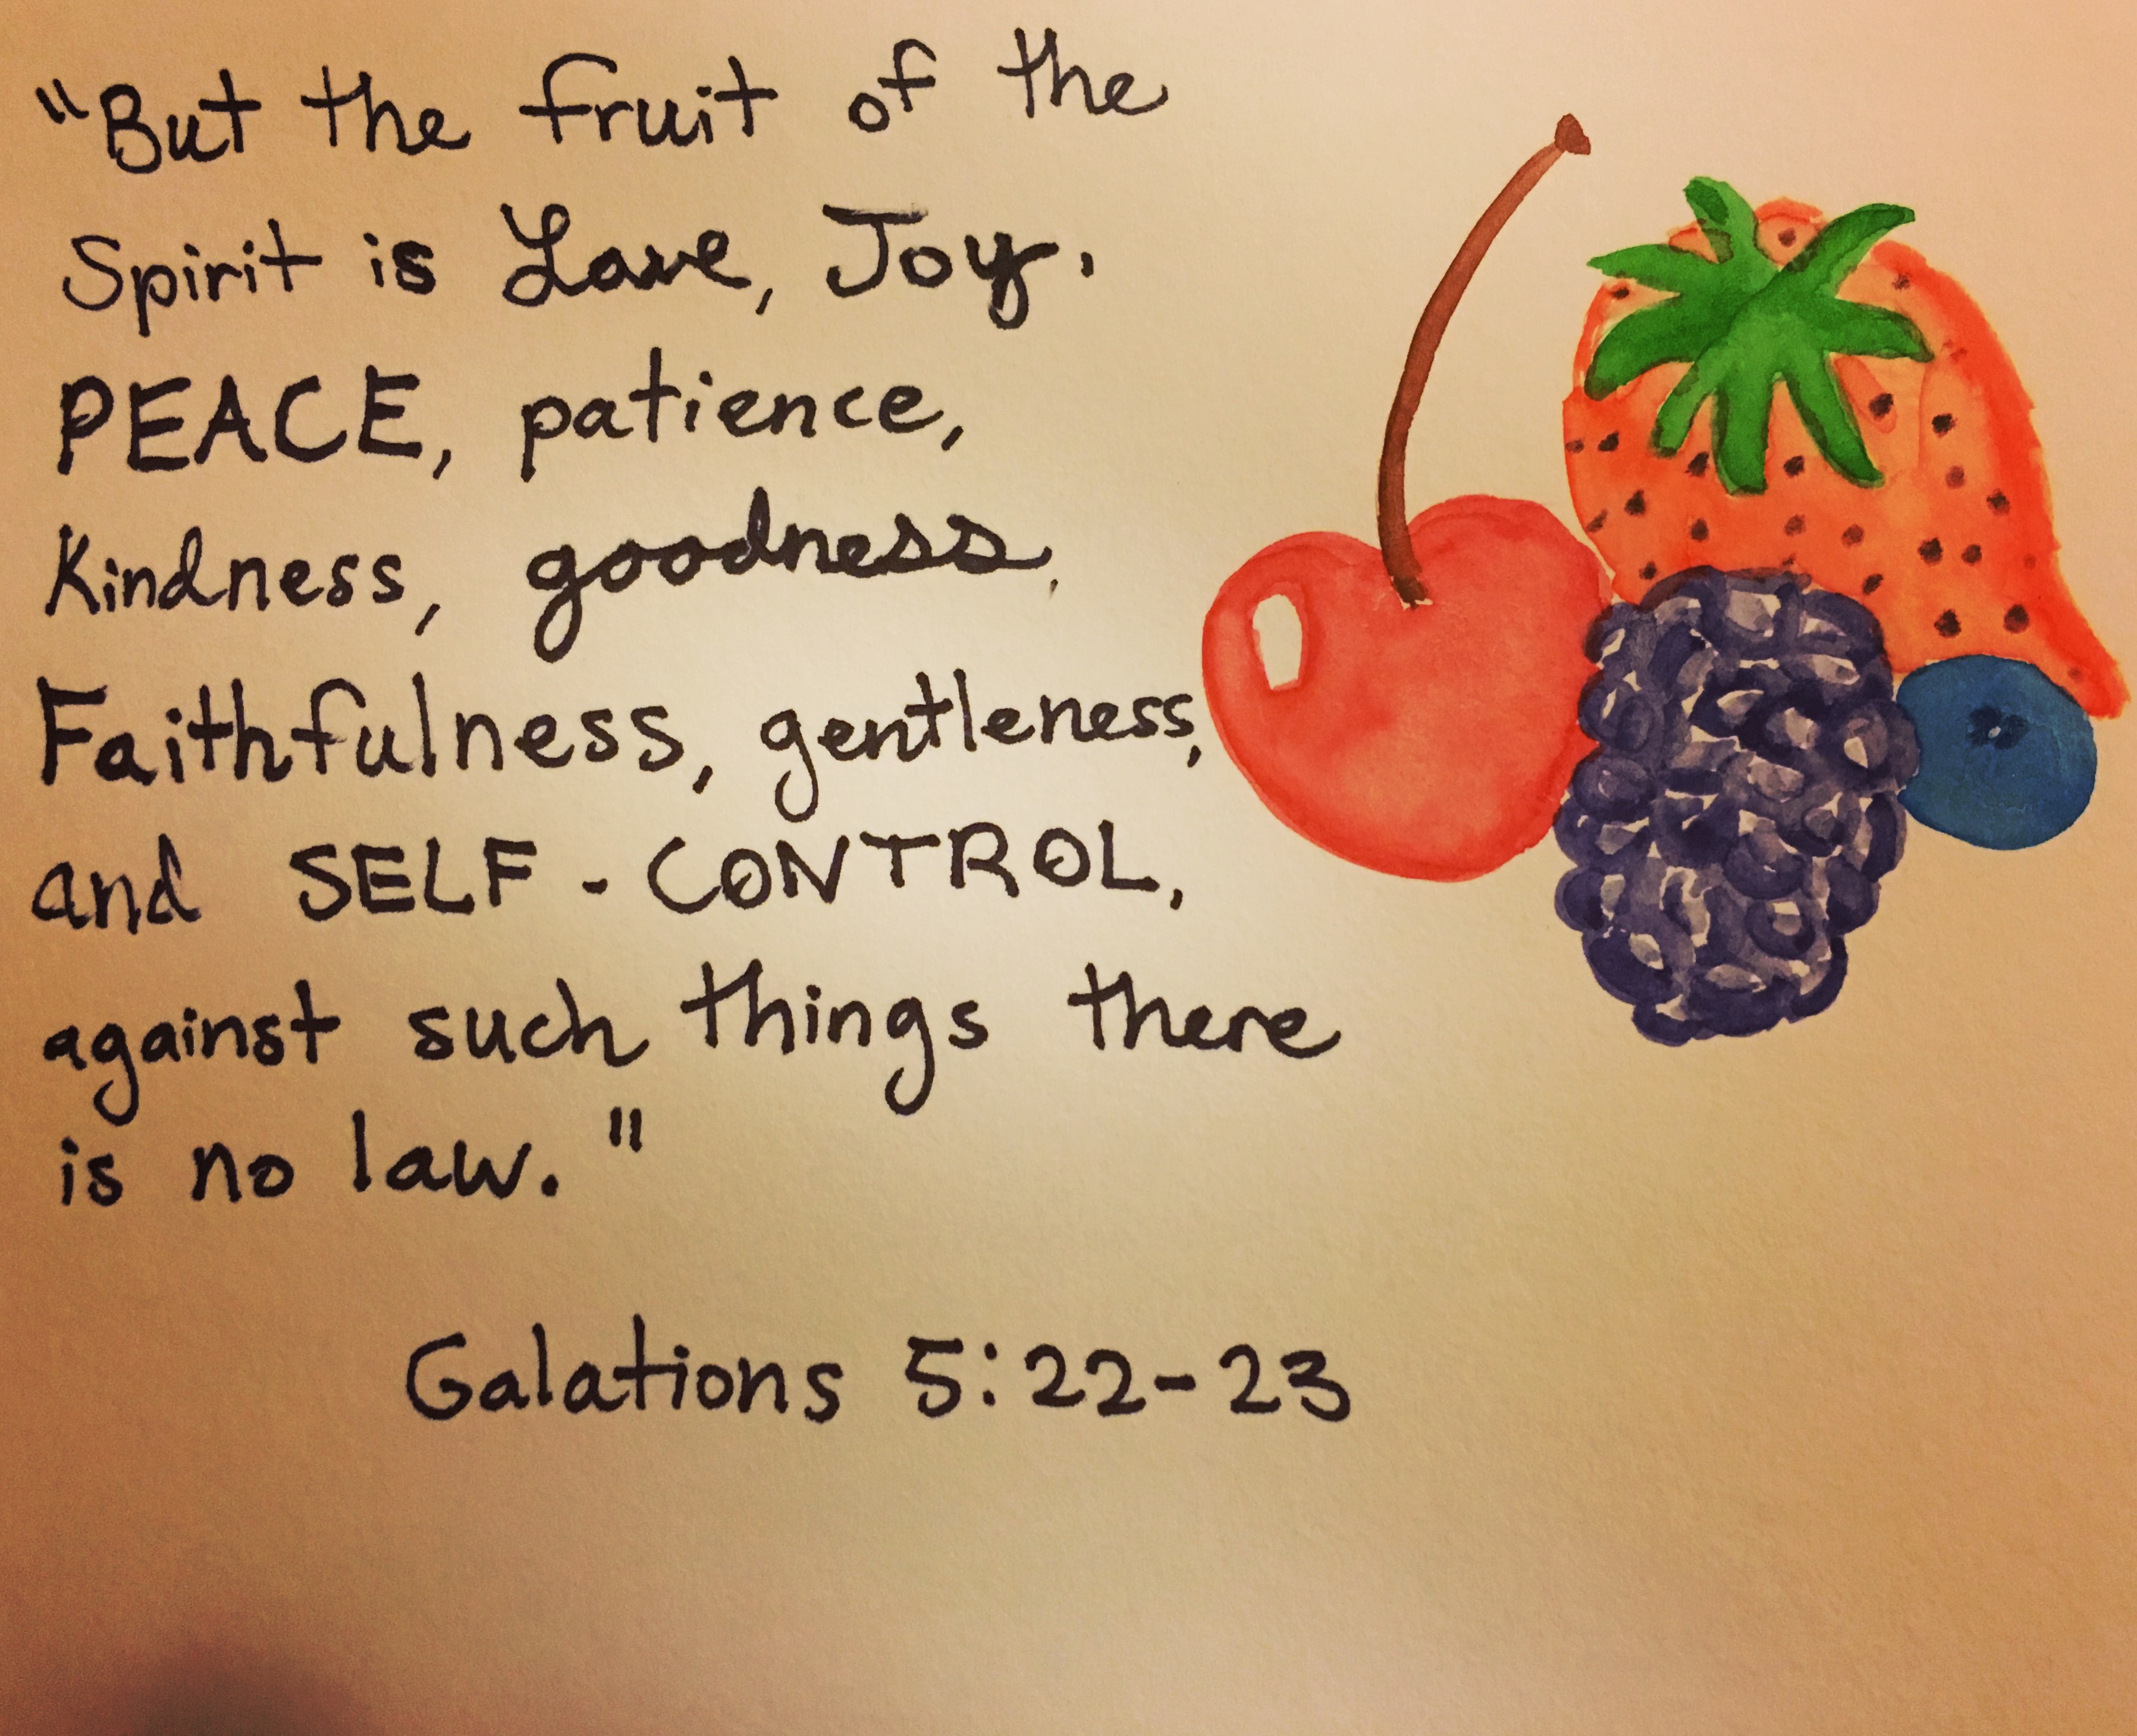 "But the fruit of the
Spirit is Love, Joy,
PEACE, patience,
Kindness, goodness,
Faithfulness, gentleness,
and SELF-CONTROL,
against such things there
is no law."
Galations 5:22-23